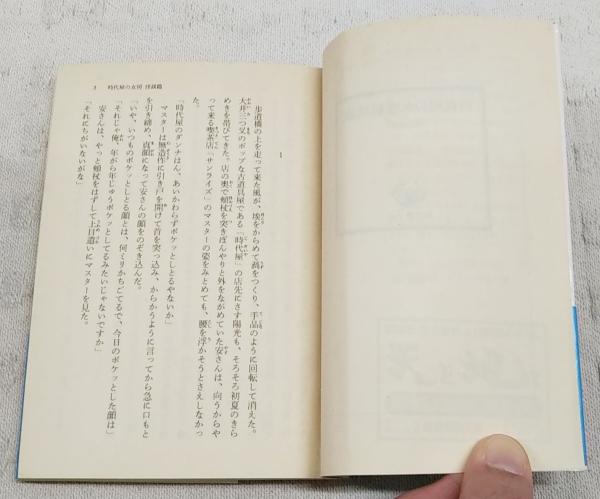 3 時代屋の女房 怪談篇
1
歩道橋の上を走って来た風が、埃をからめて渦をつくり、手品のように回転して消えた。
大井三つ又のポップな古道具屋である「時代屋」の店先にさす陽光も、そろそろ初夏のきら
めきを帯びてきた。店の奥で頬杖を突きぼんやりと外をながめていた安さんは、向うからや
って来る喫茶店「サンライズ」のマスターの姿をみとめても、腰を浮かそうとさえしなかっ
た。
「時代屋のダンナはん、あいかわらずポケッとしとるやないか」
マスターは無造作に引き戸を開けて首を突っ込み、からかうように言ってから急に口もと
を引き締め、真顔になって安さんの顔をのぞき込んだ。
「いや、いつものポケッとしとる顔とは、何ミリかちごてるで、今日のポケッとした顔は」
「それじゃ俺、年がら年じゅうポケッとしてるみたいじゃないですか」
安さんは、やっと頬杖をはずして上目遣いにマスターを見た。
「それにちがいないがな」